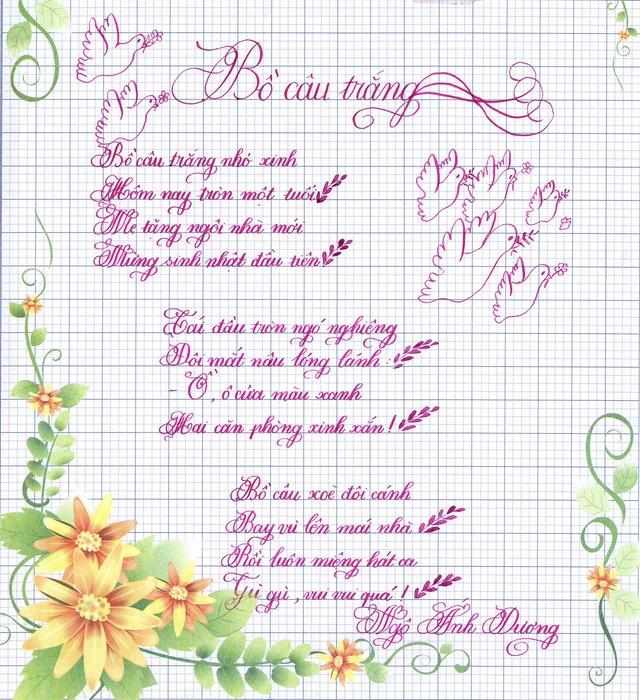 Bồ câu trắng
Bồ câu trắng nhỏ xinh
Hôm nay tròn một tuổi
Mẹ tặng ngôi nhà mới
Mừng sinh nhật đầu tiên
Cái đầu tròn ngó nghiêng
Đôi mắt nâu lóng lánh :
- Ồ, ô cửa màu xanh
Hai căn phòng xinh xắn !
Bồ câu xoè đôi cánh
Bay vù lên mái nhà
Rồi luôn miệng hát ca
Gù gù, vui vui quá !
Ngô Ánh Dương